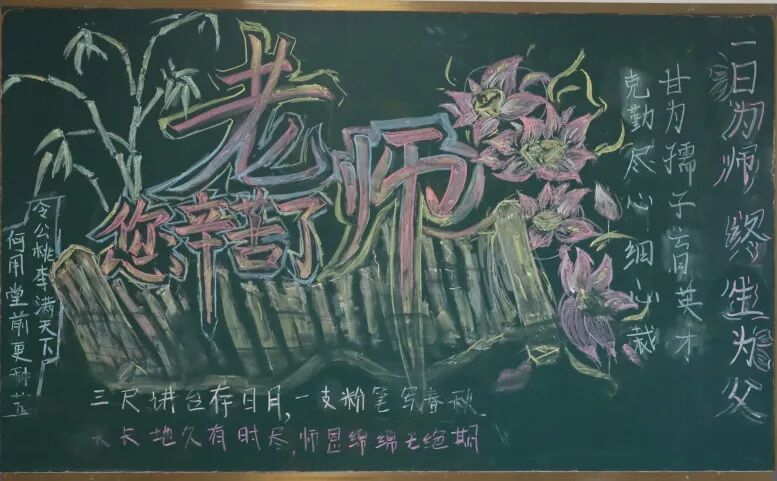 一日为师 终生为父
甘为孺子育英才
克勤尽心细心栽
老师
您辛苦了
令公桃李满天下
何用堂前更种
三尺讲台存日月,一支粉笔写春秋
长地久有时尽,师恩绵绵无绝期